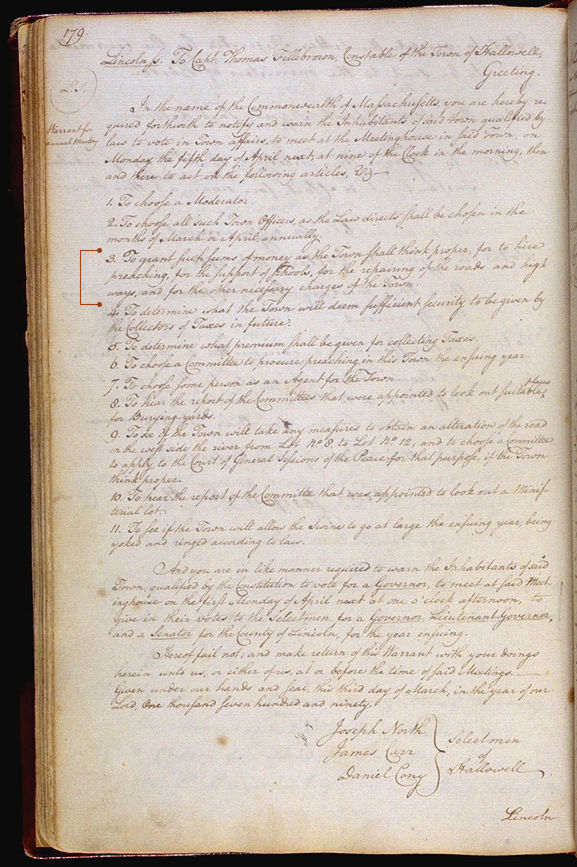 179
Lincoln ss. To Capt. Thomas Fillebrown, Constable of the Town of Hallowell,
Greeting.
L.S.
Warrant for
annual Meeting
In the name of the Commonwealth of Massachusetts you are hereby re-
quired forthwith to notify and warn the Inhabitants of said town qualified by
law to vote in Town affairs, to meet at the Meetinghouse in said Town, on
Monday the fifth day of April next, at nine of the Clock in the morning, then
and there to act on the following articles, Viz.
1. To choose a Moderator.
2. To choose all such Town Officers, as the Law directs shall be chosen in the
months of March or April, annually.
3. To grant such sums of money as the Town shall think proper, for to hire
preaching, for the support of schools, for the repairing of the roads and high
ways, and for the other necessary charges of the Town.
4. To determine what the Town will deem sufficient security to be given by
the Collectors of Taxes in future.
5. To determine what premium shall be given for collecting Taxes.
6. To choose a Committee to procure preaching in this Town the ensuing year.
7. To choose some person as an Agent for the Town.
8. To hear the report of the Committees that were appointed to look out suitable places
for Burying yards.
9. To see if the Town will take any measures to obtain an alteration of the road
on the west side the river from Lot No. 8 to Lot No. 12, and to choose a Committee
to apply to the Court of General Sessions of the Peace for that purpose, if the Town
think proper.
10. To hear the report of the Committe that was appointed to look out a Minis-
terial lot.
11. To see if the Town will allow the Swine to go at large the ensuing year, being
yoked and ringed acording to law.
And you are in like manner required to warn the Inhabitants of said
Town, qualified by the Constitution to vote for a Governor, to meet at said Meet-
inghouse on the first Monday of April next at one o'clock afternoon, to
give in their votes to the Selectmen for a Governor, Lieutenant Governor,
and a Senator for the County of Lincoln, for the year ensuing.
Hereof fail not; and make return of this Warrant with your doings
herein unto us, or either of us, at or before the time of said Meetings.
Given under our hands and seal, this third day of March, in the year of our
Lord, One thousand seven hundred and ninety.
Joseph North
James Carr
Daniel Cony
Selectmen
of
Hallowell
Lincoln